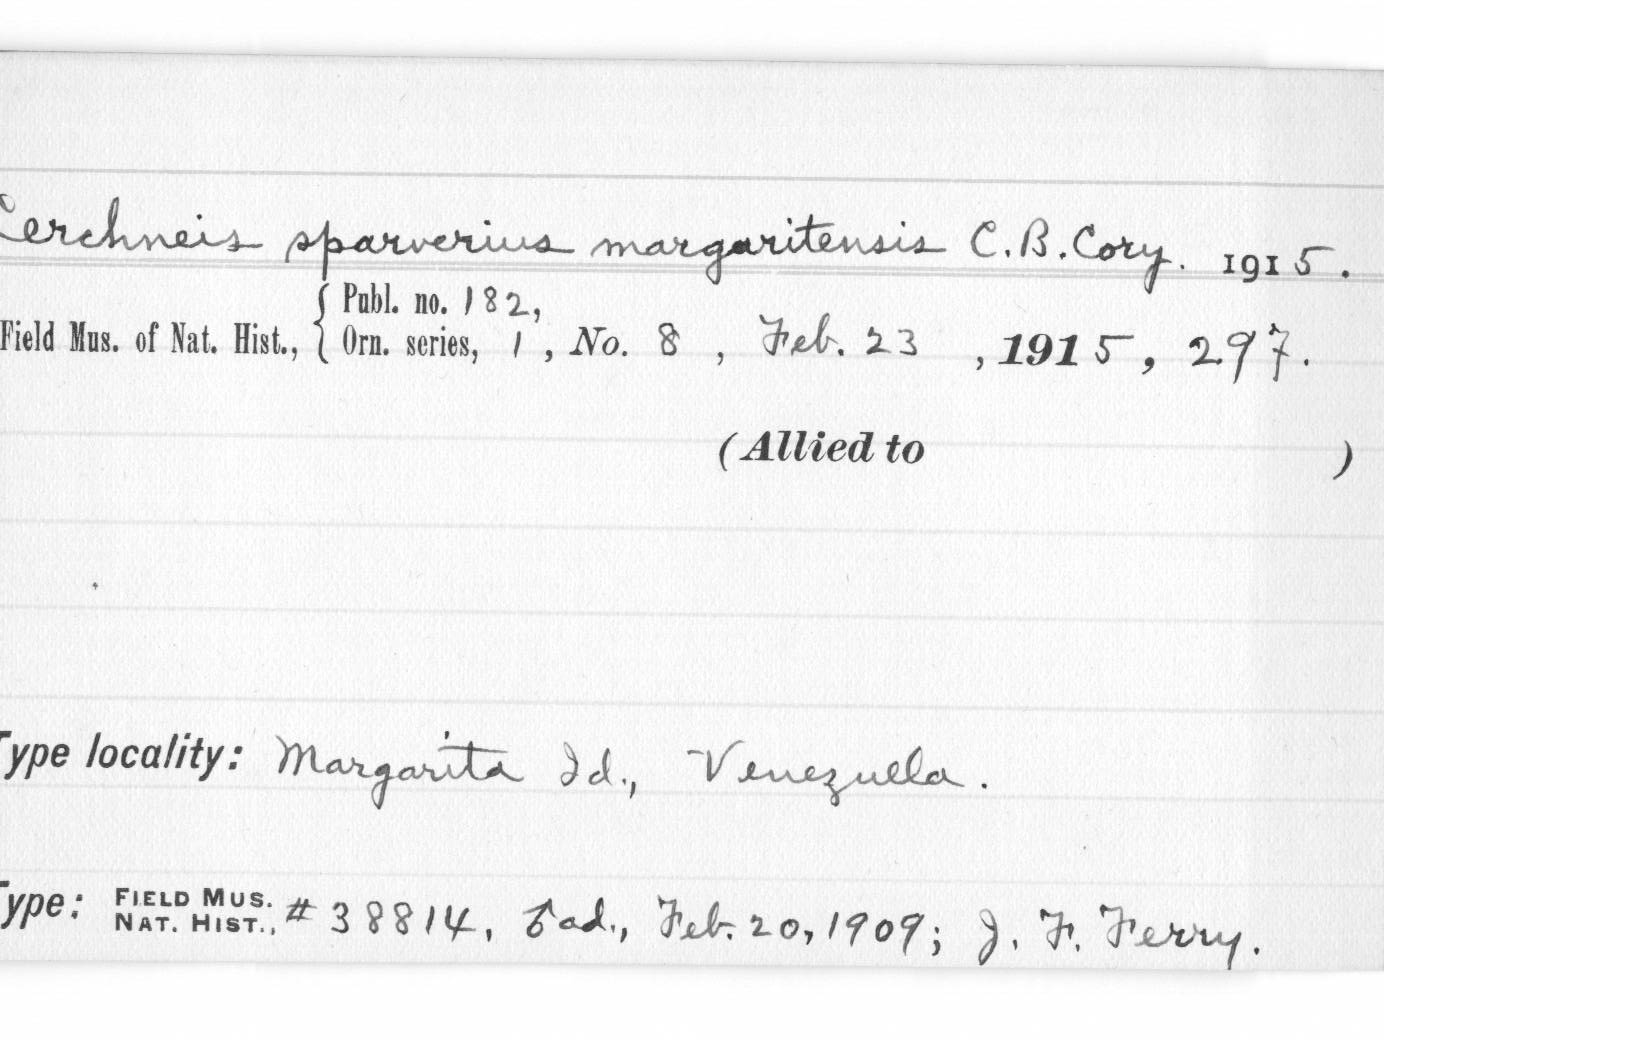 Cerchneis sparverius margaritensis C. B. Cory. 1915.
Publ. no. 182,
Field Mus. of Nat. Hist., Orn. series, 1, No. 8, Feb. 23, 1915, 297.
(Allied to )
Type locality: Margarita Id., Venezuela.
Type: FIELD MUS. NAT. HIST., # 38814, ♂ ad., Feb. 20, 1909; J. F. Ferry.